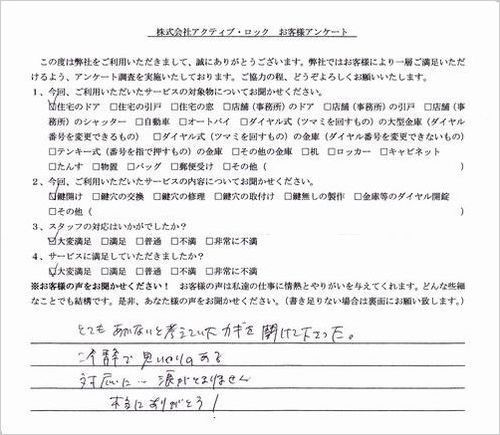 株式会社アクティブ・ロック お客様アンケート
この度は弊社をご利用いただきまして、誠にありがとうございます。弊社ではお客様により一層ご満足いただ
けるよう、アンケート調査を実施いたしております。ご協力の程、どうぞよろしくお願いいたします。
1、今回、ご利用いただいたサービスの対象物についてお聞かせください。
☑住宅のドア □住宅の引戸 □住宅の窓 □店舗(事務所)のドア □店舗(事務所)の引戸 □店舗(事
務所)のシャッター □自動車 □オートバイ □ダイヤル式(ツマミを回すもの)の大型金庫(ダイヤル
番号を変更できるもの) □ダイヤル式(ツマミを回すもの)の金庫(ダイヤル番号を変更できないもの)
□テンキー式(番号を指で押すもの)の金庫 □その他の金庫 □机 □ロッカー □キャビネット
□たんす □物置 □バッグ □郵便受け □その他( )
2、今回、ご利用いただいたサービスの内容についてお聞かせください。
☑鍵開け □鍵穴の交換 □鍵穴の修理 □鍵穴の取付け □鍵無しの製作 □金庫等のダイヤル開錠
□その他( )
3、スタッフの対応はいかがでしたか?
☑大変満足 □満足 □普通 □不満 □非常に不満
4、サービスに満足していただきましたか?
☑大変満足 □満足 □普通 □不満 □非常に不満
※お客様の声をお聞かせください! お客様の声は私達の仕事に情熱とやりがいを与えてくれます。どんな些細
なことでも結構です。是非、あなた様の声をお聞かせください。(書き足りない場合は裏面にお願い致します。)
とても あかないと考えていた カギを 開けて下さった。
冷静で 思いやりのある
対応に… 涙がとまりません
本当にありがとう!